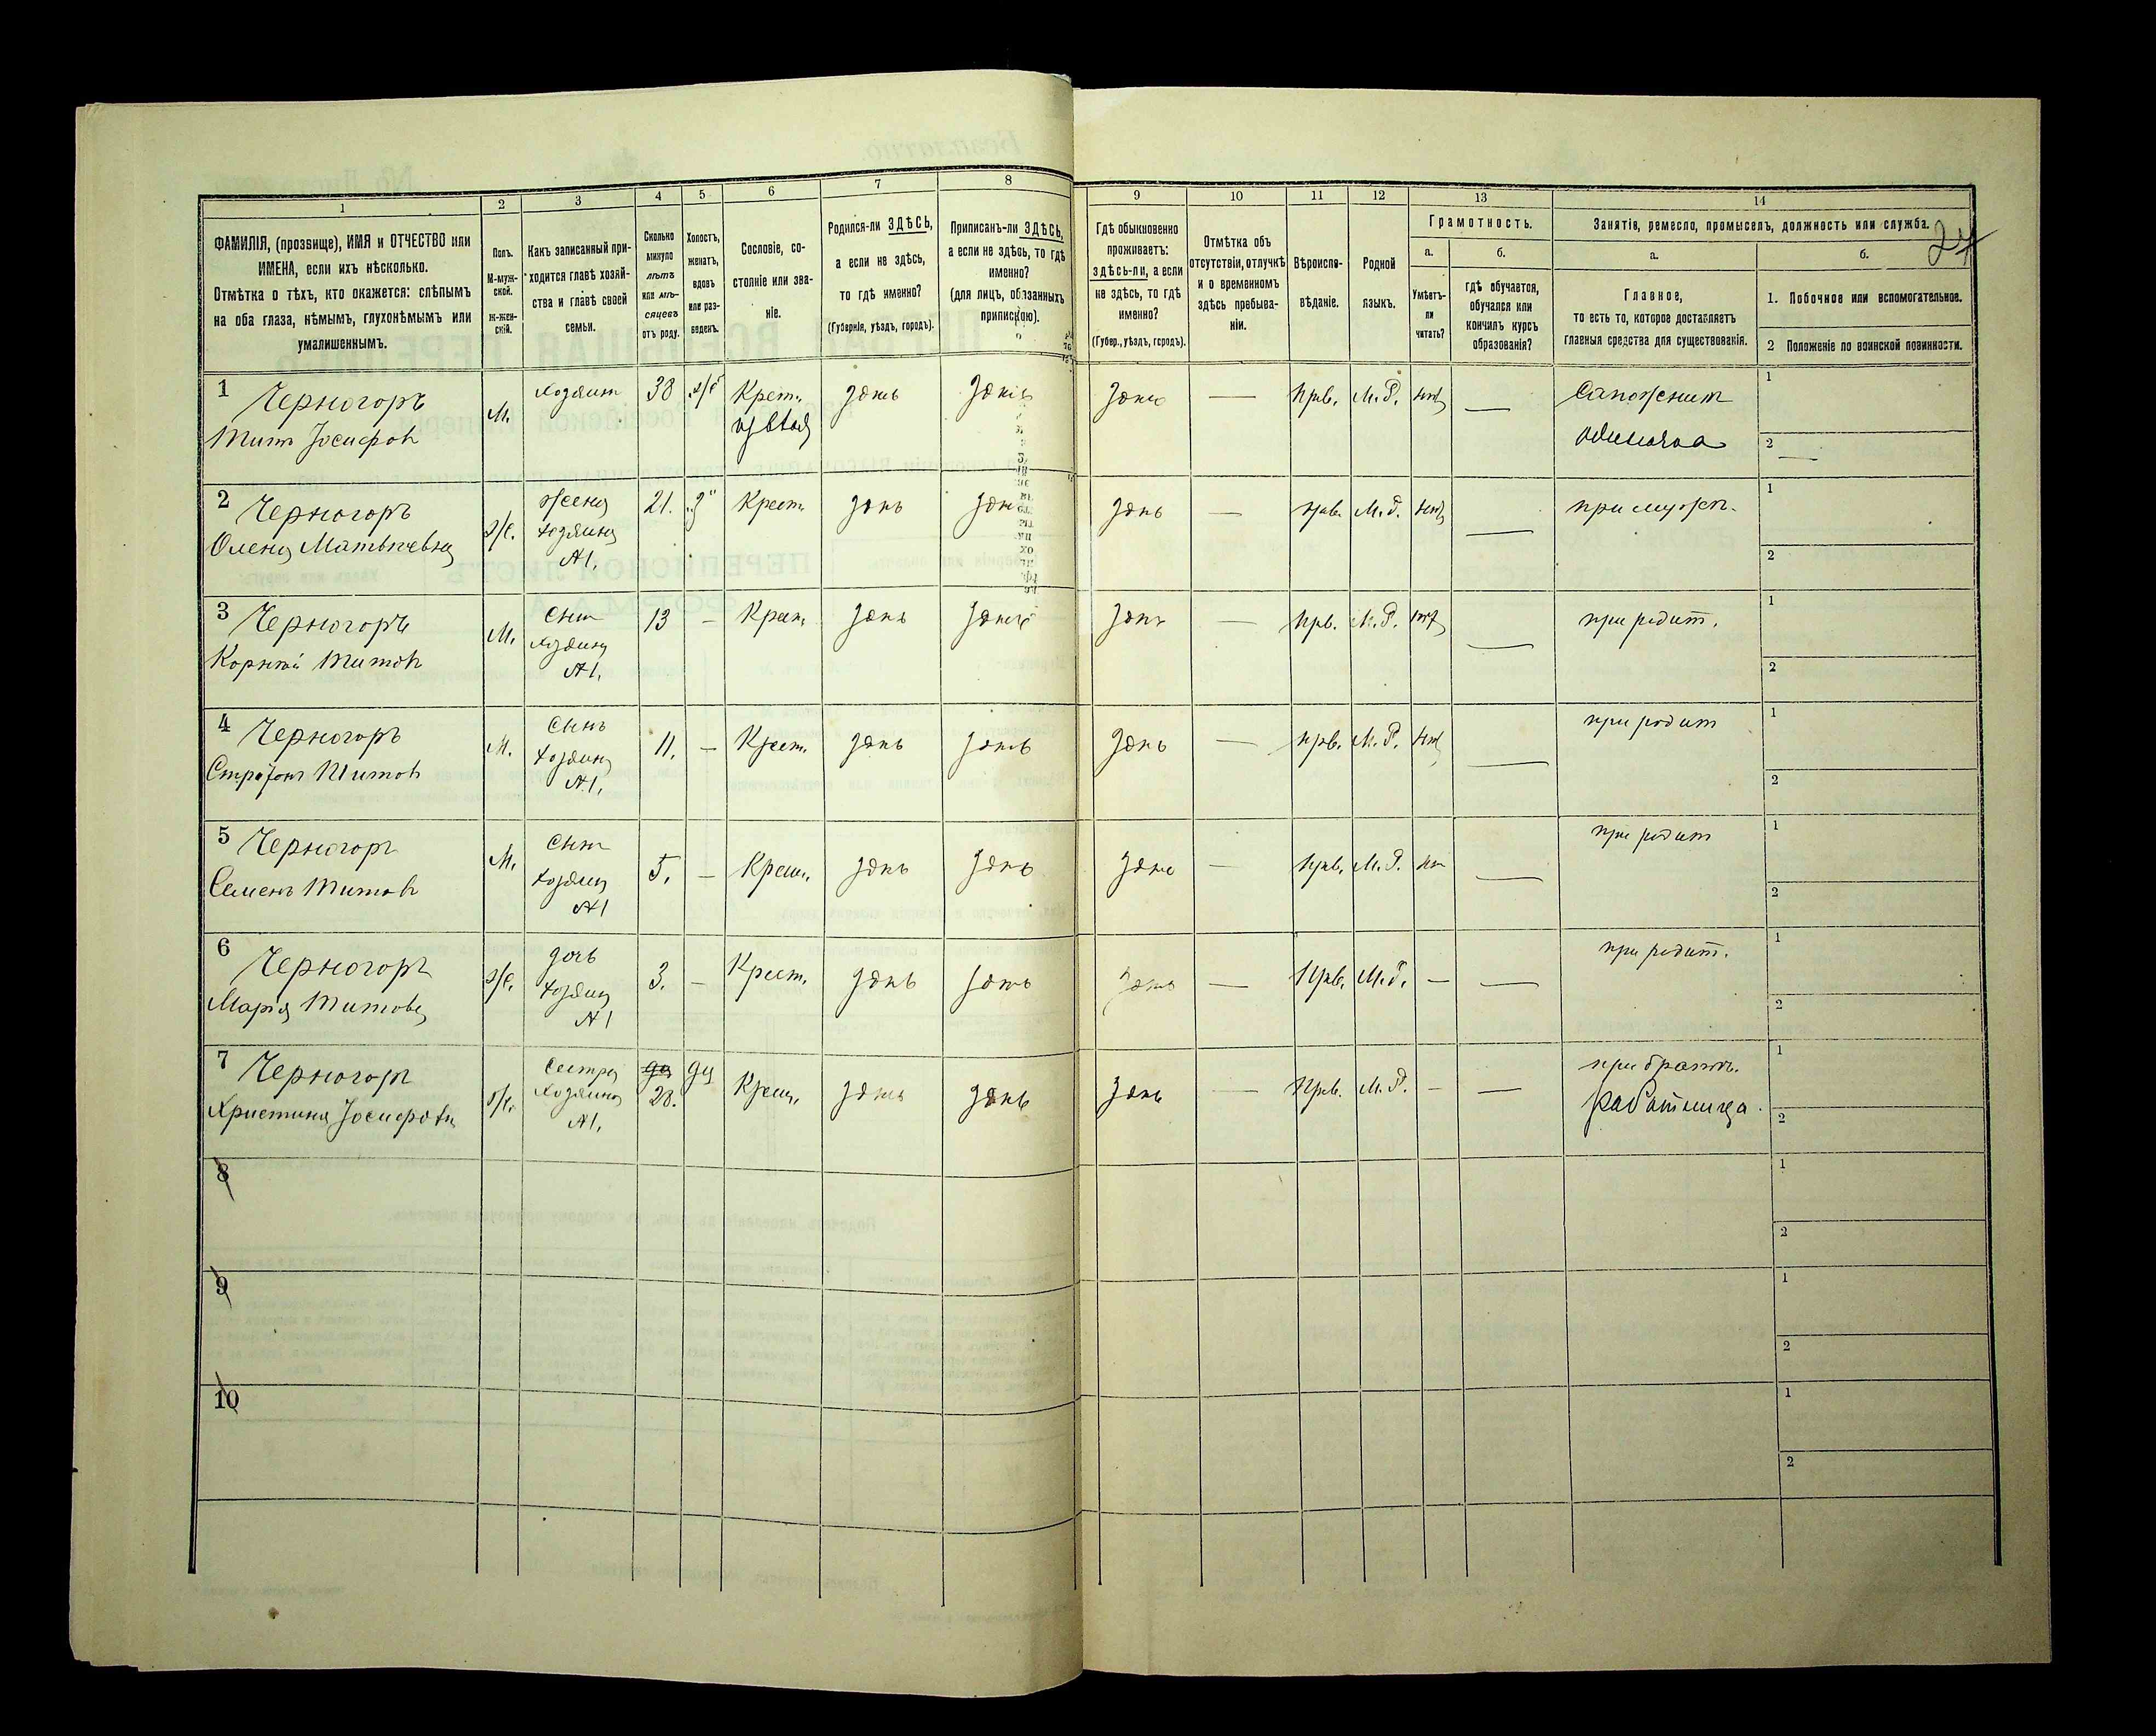 1 2 3 4 5 6 7 8 9 10 11 12 13 14
ФАМИЛІЯ, (прозвище), ИМЯ и ОТЧЕСТВО или
ИМЕНА, если ихъ нѣсколько.
Отмѣтка о тѣхъ, кто окажется: слѣпымъ
на оба глаза, нѣмымъ, глухонѣмымъ или
умалишеннымъ.
Полъ.
М-муж-
ской.
Ж-жен-
скій.
Какъ записанный при-
ходится главѣ хозяй-
ства и главѣ своей
семьи.
Сколько
минуло
лѣтъ
или мѣ-
сяцевъ
отъ роду.
Холостъ,
женатъ,
вдовъ
или раз-
веденъ.
Сословіе, со-
стояніе или зва-
ніе.
Родился-ли ЗДѢСЬ,
а если не здѣсь,
то гдѣ именно?
(Губернія, уѣздъ, городъ).
Приписанъ-ли ЗДѢСЬ,
а если не здѣсь, то гдѣ
именно?
(для лицъ, обязанныхъ
припискою).
Гдѣ обыкновенно
проживаетъ:
здѣсь-ли, а если
не здѣсь, то гдѣ
именно?
(Губер., уѣздъ, городъ).
Отмѣтка объ
отсутствіи, отлучкѣ
и о временномъ
здѣсь пребыва-
ніи.
Вѣроиспо-
вѣданіе.
Родной
языкъ.
Грамотность.
а.
Умѣетъ-
ли
читать?
б.
гдѣ обучается,
обучался или
кончилъ курсъ
образованія?
Занятія, ремесло, промыселъ, должность или служба.
24
а.
Главное,
то есть то, которое доставляетъ
главныя средства для существованія.
б.
1. Побочное или вспомогательное.
2 Положеніе по воинской повинности.
1 Черногоръ М. Хозяинъ 38 ж Крест. здѣсь здѣсь здѣсь — Прв. М.Р. нѣтъ — Сапожникъ 1
Титъ Іосифовъ одиночка 2 —
2 Черногоръ ж. жена 21. з Крест. здѣсь здѣсь здѣсь — прав. М.Р. нѣтъ — при мужѣ. 1
Олена Матвѣевна хозяина 2
№1.
3 Черногоръ М. Сынъ 13 — Крест. здѣсь здѣсь здѣсь — Прв. М.Р. нѣтъ — при родит. 1
Корній Титовъ хозяина 2
№1.
4 Черногоръ М. Сынъ 11. — Крест. здѣсь здѣсь здѣсь — прв. М.Р. нѣтъ — при родит 1
Титовъ хозяина 2
№1.
5 Черногоръ М. Сынъ 5. — Крест. здѣсь здѣсь здѣсь — Прав. М.Р. — при родит 1
Семенъ Титовъ хозяина 2
№1
6 Черногоръ ж. дочь 3. — Крест. здѣсь здѣсь здѣсь — Прав. М.Р. — — при родит. 1
Марія Титова хозяина 2
№1
7 Черногоръ ж. Сестра 28. Крест. здѣсь здѣсь здѣсь — Прав. М.Р. — — при братѣ. 1
Христина Іосифовна хозяина работница. 2
№1.
8 1
2
9 1
2
10 1
2